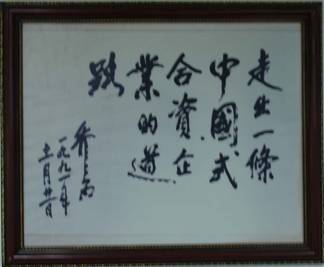 走出一條
中國式
合資企
業的道
路
喬石
一九九一年
十一月廿一日